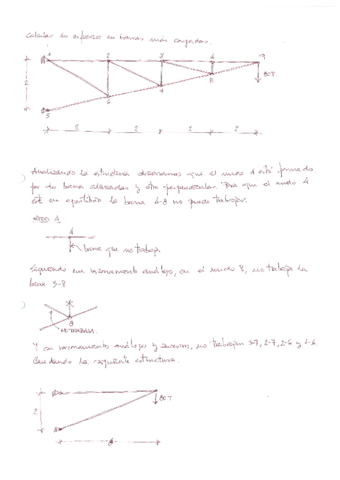 Calcular los esfuerzos en barras más cargadas.
1 2 3 4 9
80T.
2
6
5
2 2 2 2
Analizando la estructura observamos que el nudo 4 está formado
por dos barras alineadas y otra perpendicular. Para que el nudo 4
esté en equilibrio la barra 4-8 no puede trabajar.
NUDO 4
4
barra que no trabaja.
Siguiendo un razonamiento análogo, en el nudo 8, no trabaja la
barra 3-8
8
NO TRABAJA.
Y con razonamientos análogos y sucesivos, no trabajan 3-7, 2-7, 2-6 y 1-6.
Quedando la siguiente estructura.
80T.
2
8